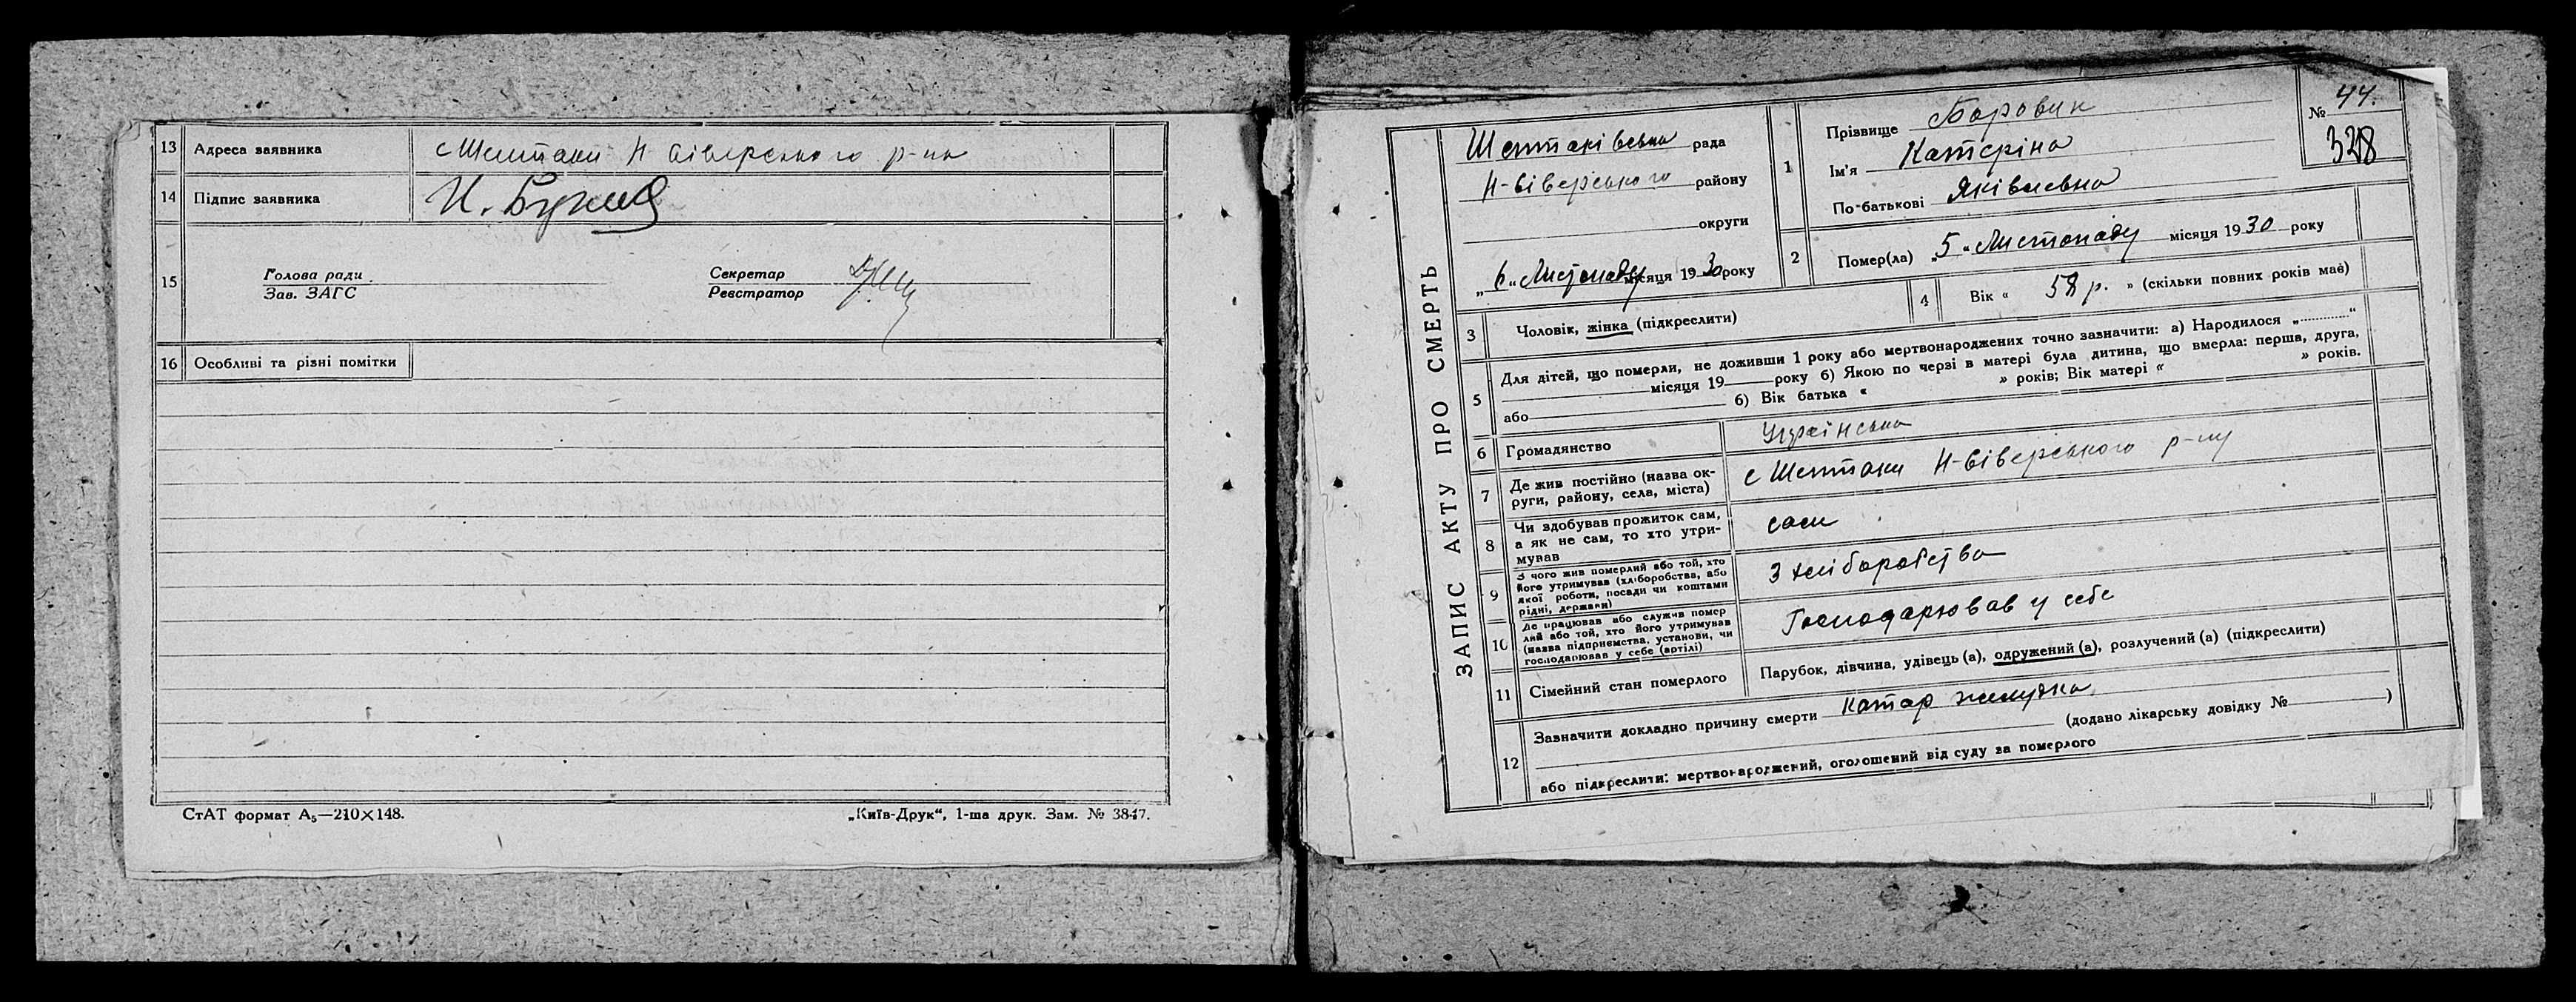 13 Адреса заявника с Шептаки Н Сіверського р-на
14 Підпис заявника
15 Голова ради
Зав. ЗАГС
Секретар
Реєстратор
16 Особливі та різні помітки
СтАТ формат А₅—210×148.
„Київ-Друк“, 1-ша друк. Зам. № 3847.
ЗАПИС АКТУ ПРО СМЕРТЬ
Шептаківська рада
Н-Сіверського району
округи
„ 6 “ Листопаду місяця 1930 року
№ 44.
328
1 Прізвище Боровик
Ім'я Катеріна
По-батькові Яківлевна
2 Помер(ла) „ 5 “ Листопаду місяця 1930 року
3 Чоловік, жінка (підкреслити)
4 Вік « 58 р. » (скільки повних років має)
5 Для дітей, що померли, не доживши 1 року або мертвонароджених точно зазначити: а) Народилося „............“
місяця 19 року б) Якою по черзі в матері була дитина, що вмерла: перша, друга,
або б) Вік батька « » років; Вік матері « » років.
6 Громадянство Українська
7 Де жив постійно (назва ок-
руги, району, села, міста) с Шептаки Н-Сіверського р-ну
8 Чи здобував прожиток сам,
а як не сам, то хто утри-
мував сам
9 З чого жив померлий або той, хто
його утримував (хліборобства, або
якої роботи, посади чи коштами
рідні, держави) З хліборобства
10 Де працював або служив помер
лий або той, хто його утримував
(назва підприємства, установи, чи
господарював у себе (артілі) Господарював у себе
11 Сімейний стан померлого Парубок, дівчина, удівець (а), одружений (а), розлучений (а) (підкреслити)
12 Зазначити докладно причину смерти Катар желудка
(додано лікарську довідку № )
або підкреслити: мертвонароджений, оголошений від суду за померлого